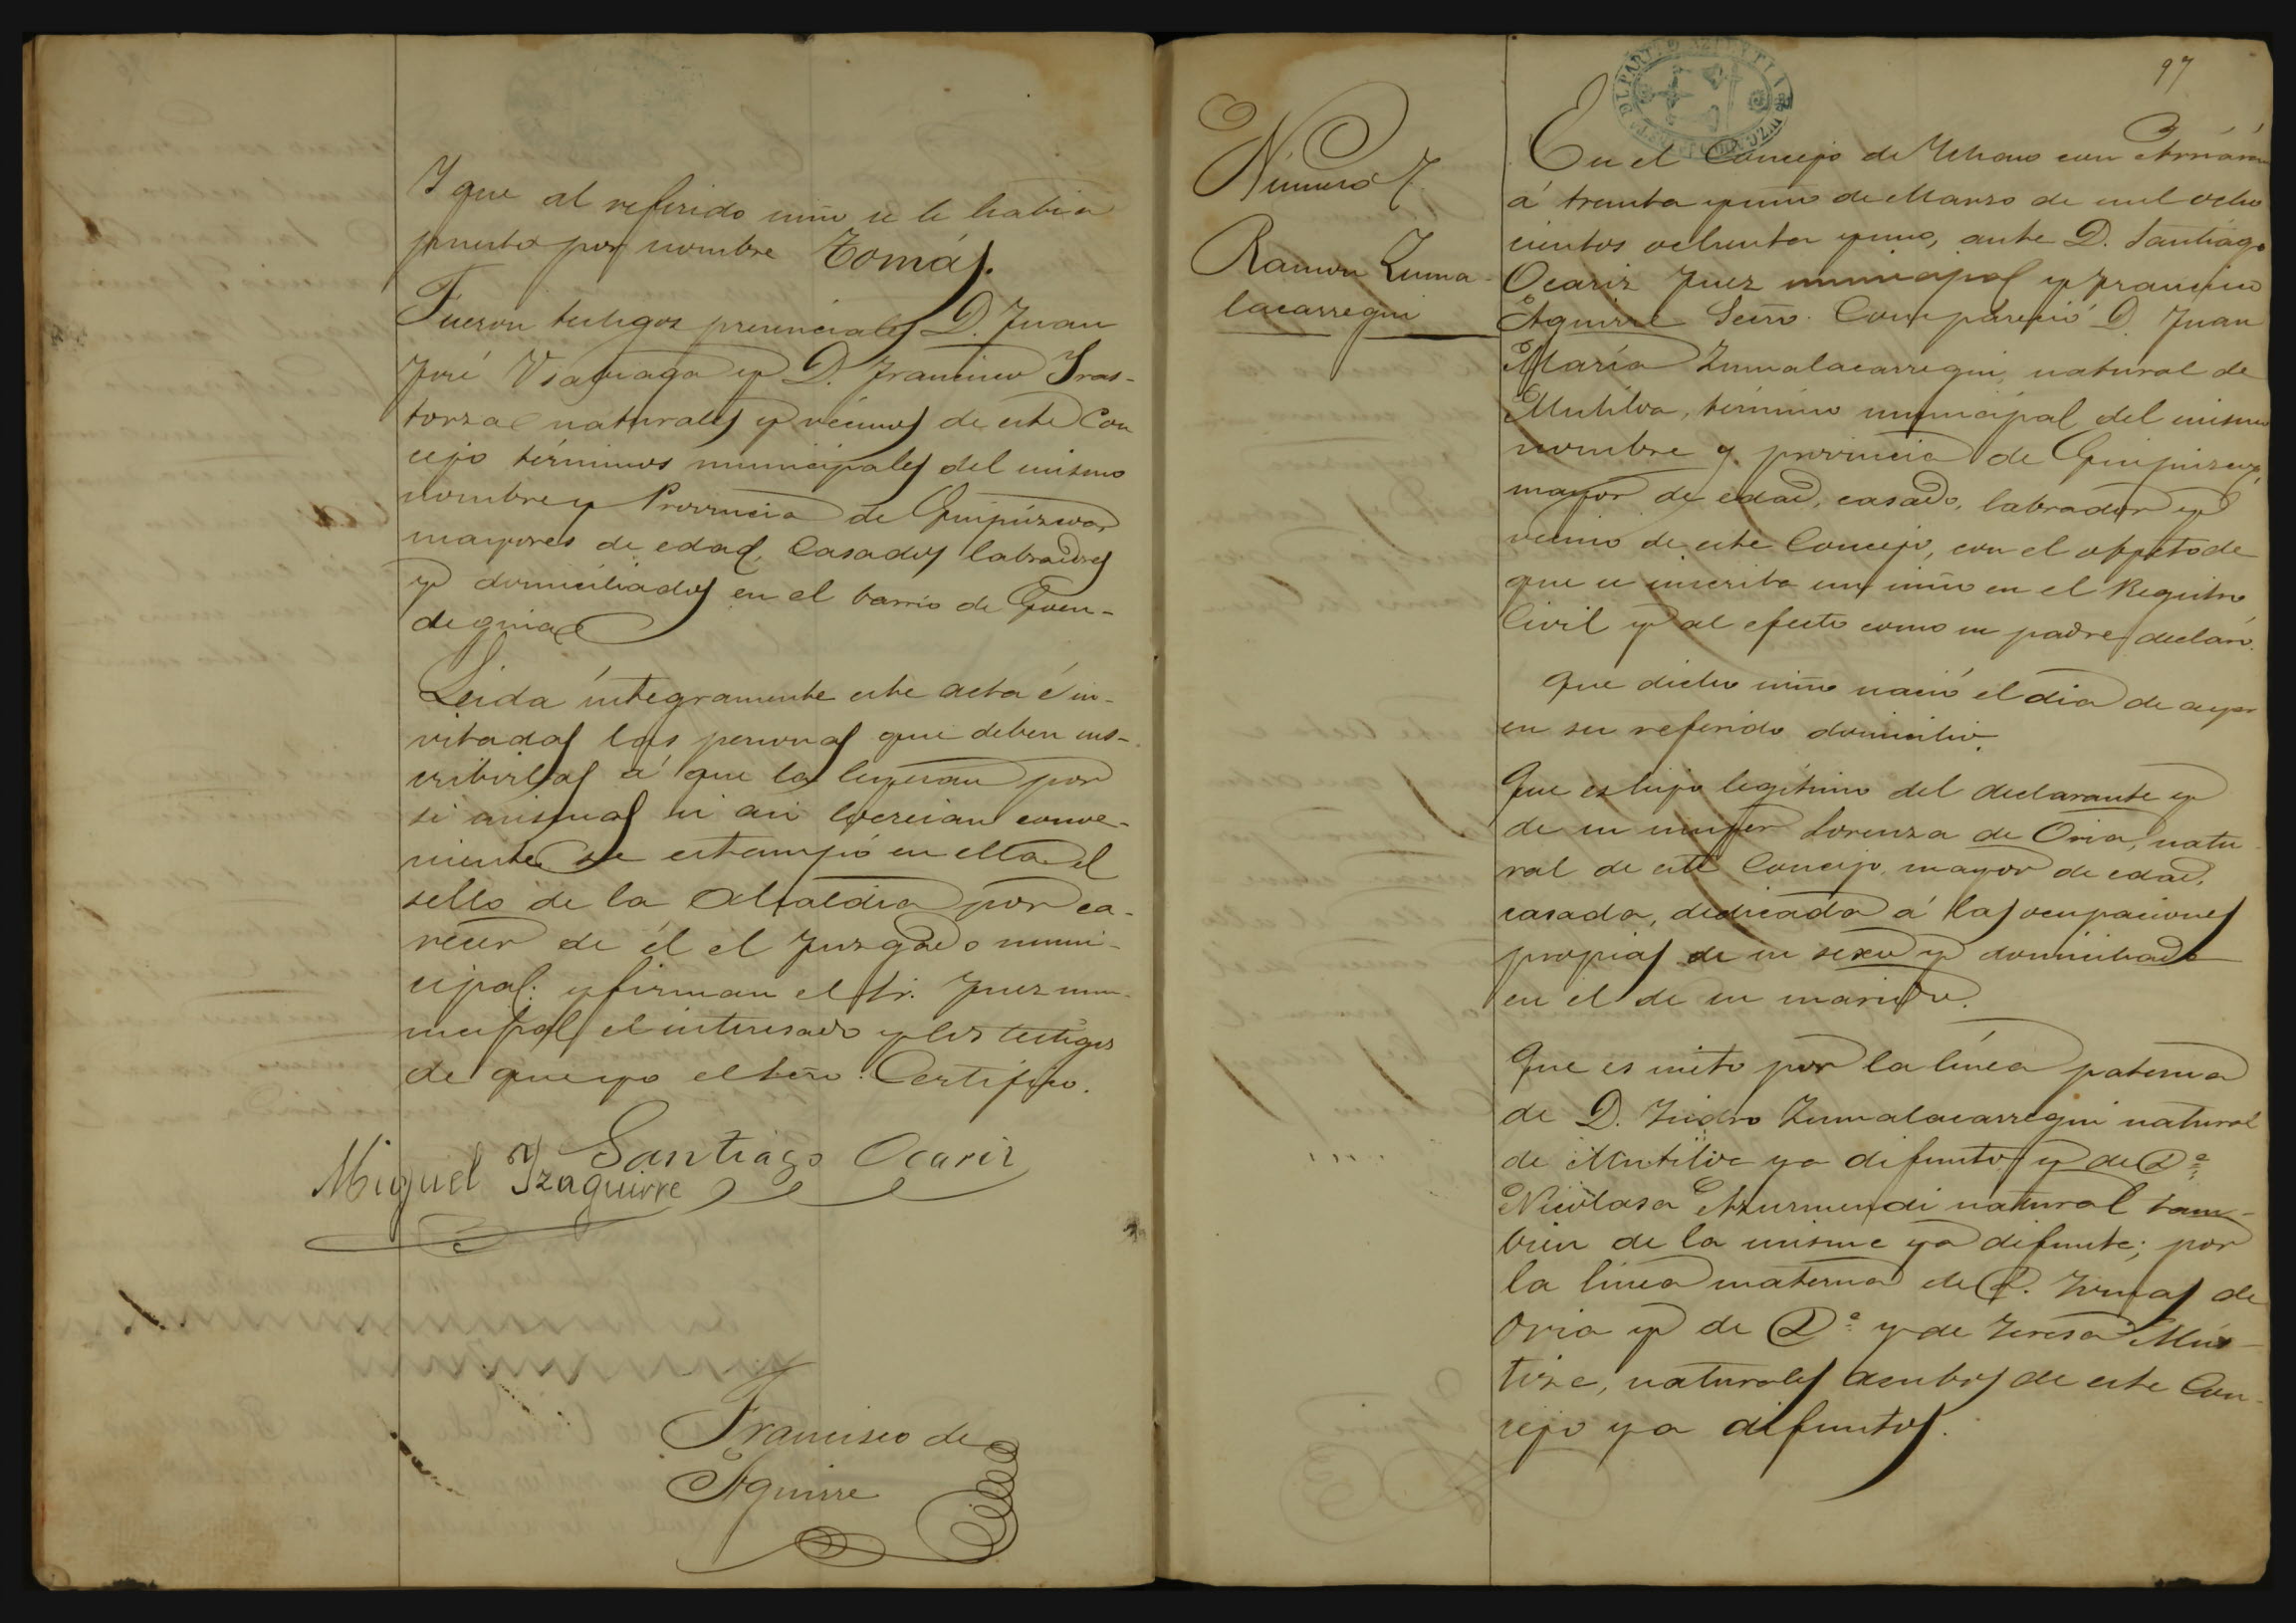 Y que al referido niño se le habia
puesto por nombre Tomás.
Fueron testigos presenciales D. Juan
José Usabiaga y D. Francisco Iras-
torza naturales y vecinos de este Con
cejo términos municipales del mismo
nombre y Provincia de Guipúzcoa,
mayores de edad, Casados labradores
y domiciliados en el barrio de
Leida íntegramente esta acta é in-
vitadas las personas que deben sus-
cribirlas á que la leyeran por
si mismas si asi lo creian conve-
niente se estampó en ella el
sello de la Alcaldia por ca-
recer de él el Juzgado muni-
cipal: y firman el Sr. Juez mu-
nicipal el interesado y los testigos
de que yo el Seño. Certifico.
Santiago Ocariz
Miguel Yzaguirre
Francisco de
Aguirre
97
Número 7.
Ramon Zuma-
lacarregui
En el Concejo de
á treinta y uno de Marzo de mil ocho
cientos ochenta y uno, ante D. Santiago
Ocariz Juez municipal y Francisco
Aguirre Seño. Compareció D. Juan
María Zumalacarregui, natural de
Mutiloa, término municipal del mismo
nombre y provincia de Guipuzcoa,
mayor de edad, casado, labrador y
vecino de este Concejo, con el objeto de
que se inscriba un niño en el Registro
Civil y al efecto como su padre declaró.
Que dicho niño nació el dia de ayer
en su referido domicilio.
Que es hijo legítimo del declarante y
de su mujer Lorenza de Oria, natu
ral de este Concejo, mayor de edad,
casada, dedicada á las ocupaciones
propias de su sexo y domiciliada
en el de su marido.
Que es nieto por la línea paterna
de D. Isidro Zumalacarregui natural
de Mutiloa ya difunto y de Dª
Nicolasa Azurmendi natural tam-
bien de la misma ya difunta; por
la línea materna de D. Tomas de
Oria y de Dª y de Teresa Mús-
tiza, naturales ambos de este Con-
cejo ya difuntos.